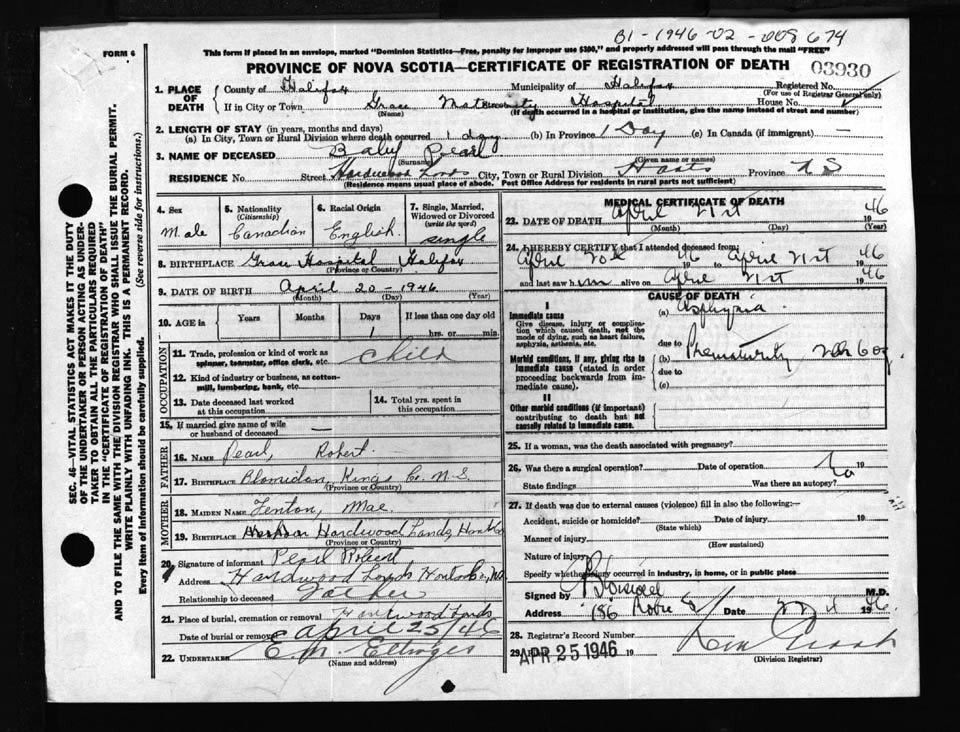 B1-1946-02-008674
FORM 6
This form if placed in an envelope, marked "Dominion Statistics—Free, penalty for improper use $300," and properly addressed will pass through the mail "FREE"
PROVINCE OF NOVA SCOTIA—CERTIFICATE OF REGISTRATION OF DEATH
03930
1. PLACE OF DEATH
County of Halifax Municipality of Halifax Registered No.
(For use of Registrar General only)
If in City or Town Grace Maternity Hospital House No.
(Name) (If death occurred in a hospital or institution, give the name instead of street and number)
2. LENGTH OF STAY (in years, months and days)
(a) In City, Town or Rural Division where death occurred 1 day (b) In Province 1 Day (c) In Canada (if immigrant) —
3. NAME OF DECEASED Baby Pearl
(Surname) (Given name or names)
RESIDENCE No. Street Hardwood Lands City, Town or Rural Division Hants Province N S
(Residence means usual place of abode. Post Office Address for residents in rural parts not sufficient)
4. Sex
Male
5. Nationality
(Citizenship)
Canadian
6. Racial Origin
English
7. Single, Married, Widowed or Divorced
(write the word)
single
8. BIRTHPLACE Grace Hospital Halifax
(Province or Country)
9. DATE OF BIRTH April 20 - 1946
(Month) (Day) (Year)
10. AGE in
Years Months Days If less than one day old
1 hrs. or min.
OCCUPATION
11. Trade, profession or kind of work as spinner, teamster, office clerk, etc. child
12. Kind of industry or business, as cotton-mill, lumbering, bank, etc.
13. Date deceased last worked at this occupation
14. Total yrs. spent in this occupation
15. If married give name of wife or husband of deceased —
FATHER
16. NAME Pearl, Robert
17. BIRTHPLACE Blomidon, Kings Co. N.S.
(Province or Country)
MOTHER
18. MAIDEN NAME Fenton, Mae
19. BIRTHPLACE Hardwood Lands, Hants Co
(Province or Country)
20. Signature of informant Pearl Robert
Address Hardwood Lands Hants Co., N.S.
Relationship to deceased Father
21. Place of burial, cremation or removal Hardwood Lands
Date of burial or removal April 25/46
22. UNDERTAKER
(Name and address)
MEDICAL CERTIFICATE OF DEATH
23. DATE OF DEATH April 21st 46
(Month) (Day) (Year)
24. I HEREBY CERTIFY that I attended deceased from:
April 20th 1946 to April 21st 1946
and last saw him alive on April 21st 1946
CAUSE OF DEATH
I
Immediate cause
Give disease, injury or complication which caused death, not the mode of dying, such as heart failure, asphyxia, asthenia, etc.
(a) Asphyxia
due to
Morbid conditions, if any, giving rise to immediate cause (stated in order proceeding backwards from immediate cause).
(b) Prematurity
due to
(c)
II
Other morbid conditions (if important) contributing to death but not causally related to immediate cause.
25. If a woman, was the death associated with pregnancy?
26. Was there a surgical operation? Date of operation 19
No
State findings Was there an autopsy?
27. If death was due to external causes (violence) fill in also the following:—
Accident, suicide or homicide? Date of injury 19
(State which)
Manner of injury
(How sustained)
Nature of injury
Specify whether injury occurred in industry, in home, or in public place
Signed by M.D.
Address 186 Robie St Date 1946
28. Registrar's Record Number
29. APR 25 1946 19
(Division Registrar)
SEC. 46—VITAL STATISTICS ACT MAKES IT THE DUTY OF THE UNDERTAKER OR PERSON ACTING AS UNDERTAKER TO OBTAIN ALL THE PARTICULARS REQUIRED IN THE "CERTIFICATE OF REGISTRATION OF DEATH" AND TO FILE THE SAME WITH THE DIVISION REGISTRAR WHO SHALL ISSUE THE BURIAL PERMIT.
WRITE PLAINLY WITH UNFADING INK. THIS IS A PERMANENT RECORD.
Every item of information should be carefully supplied. (See reverse side for instructions.)